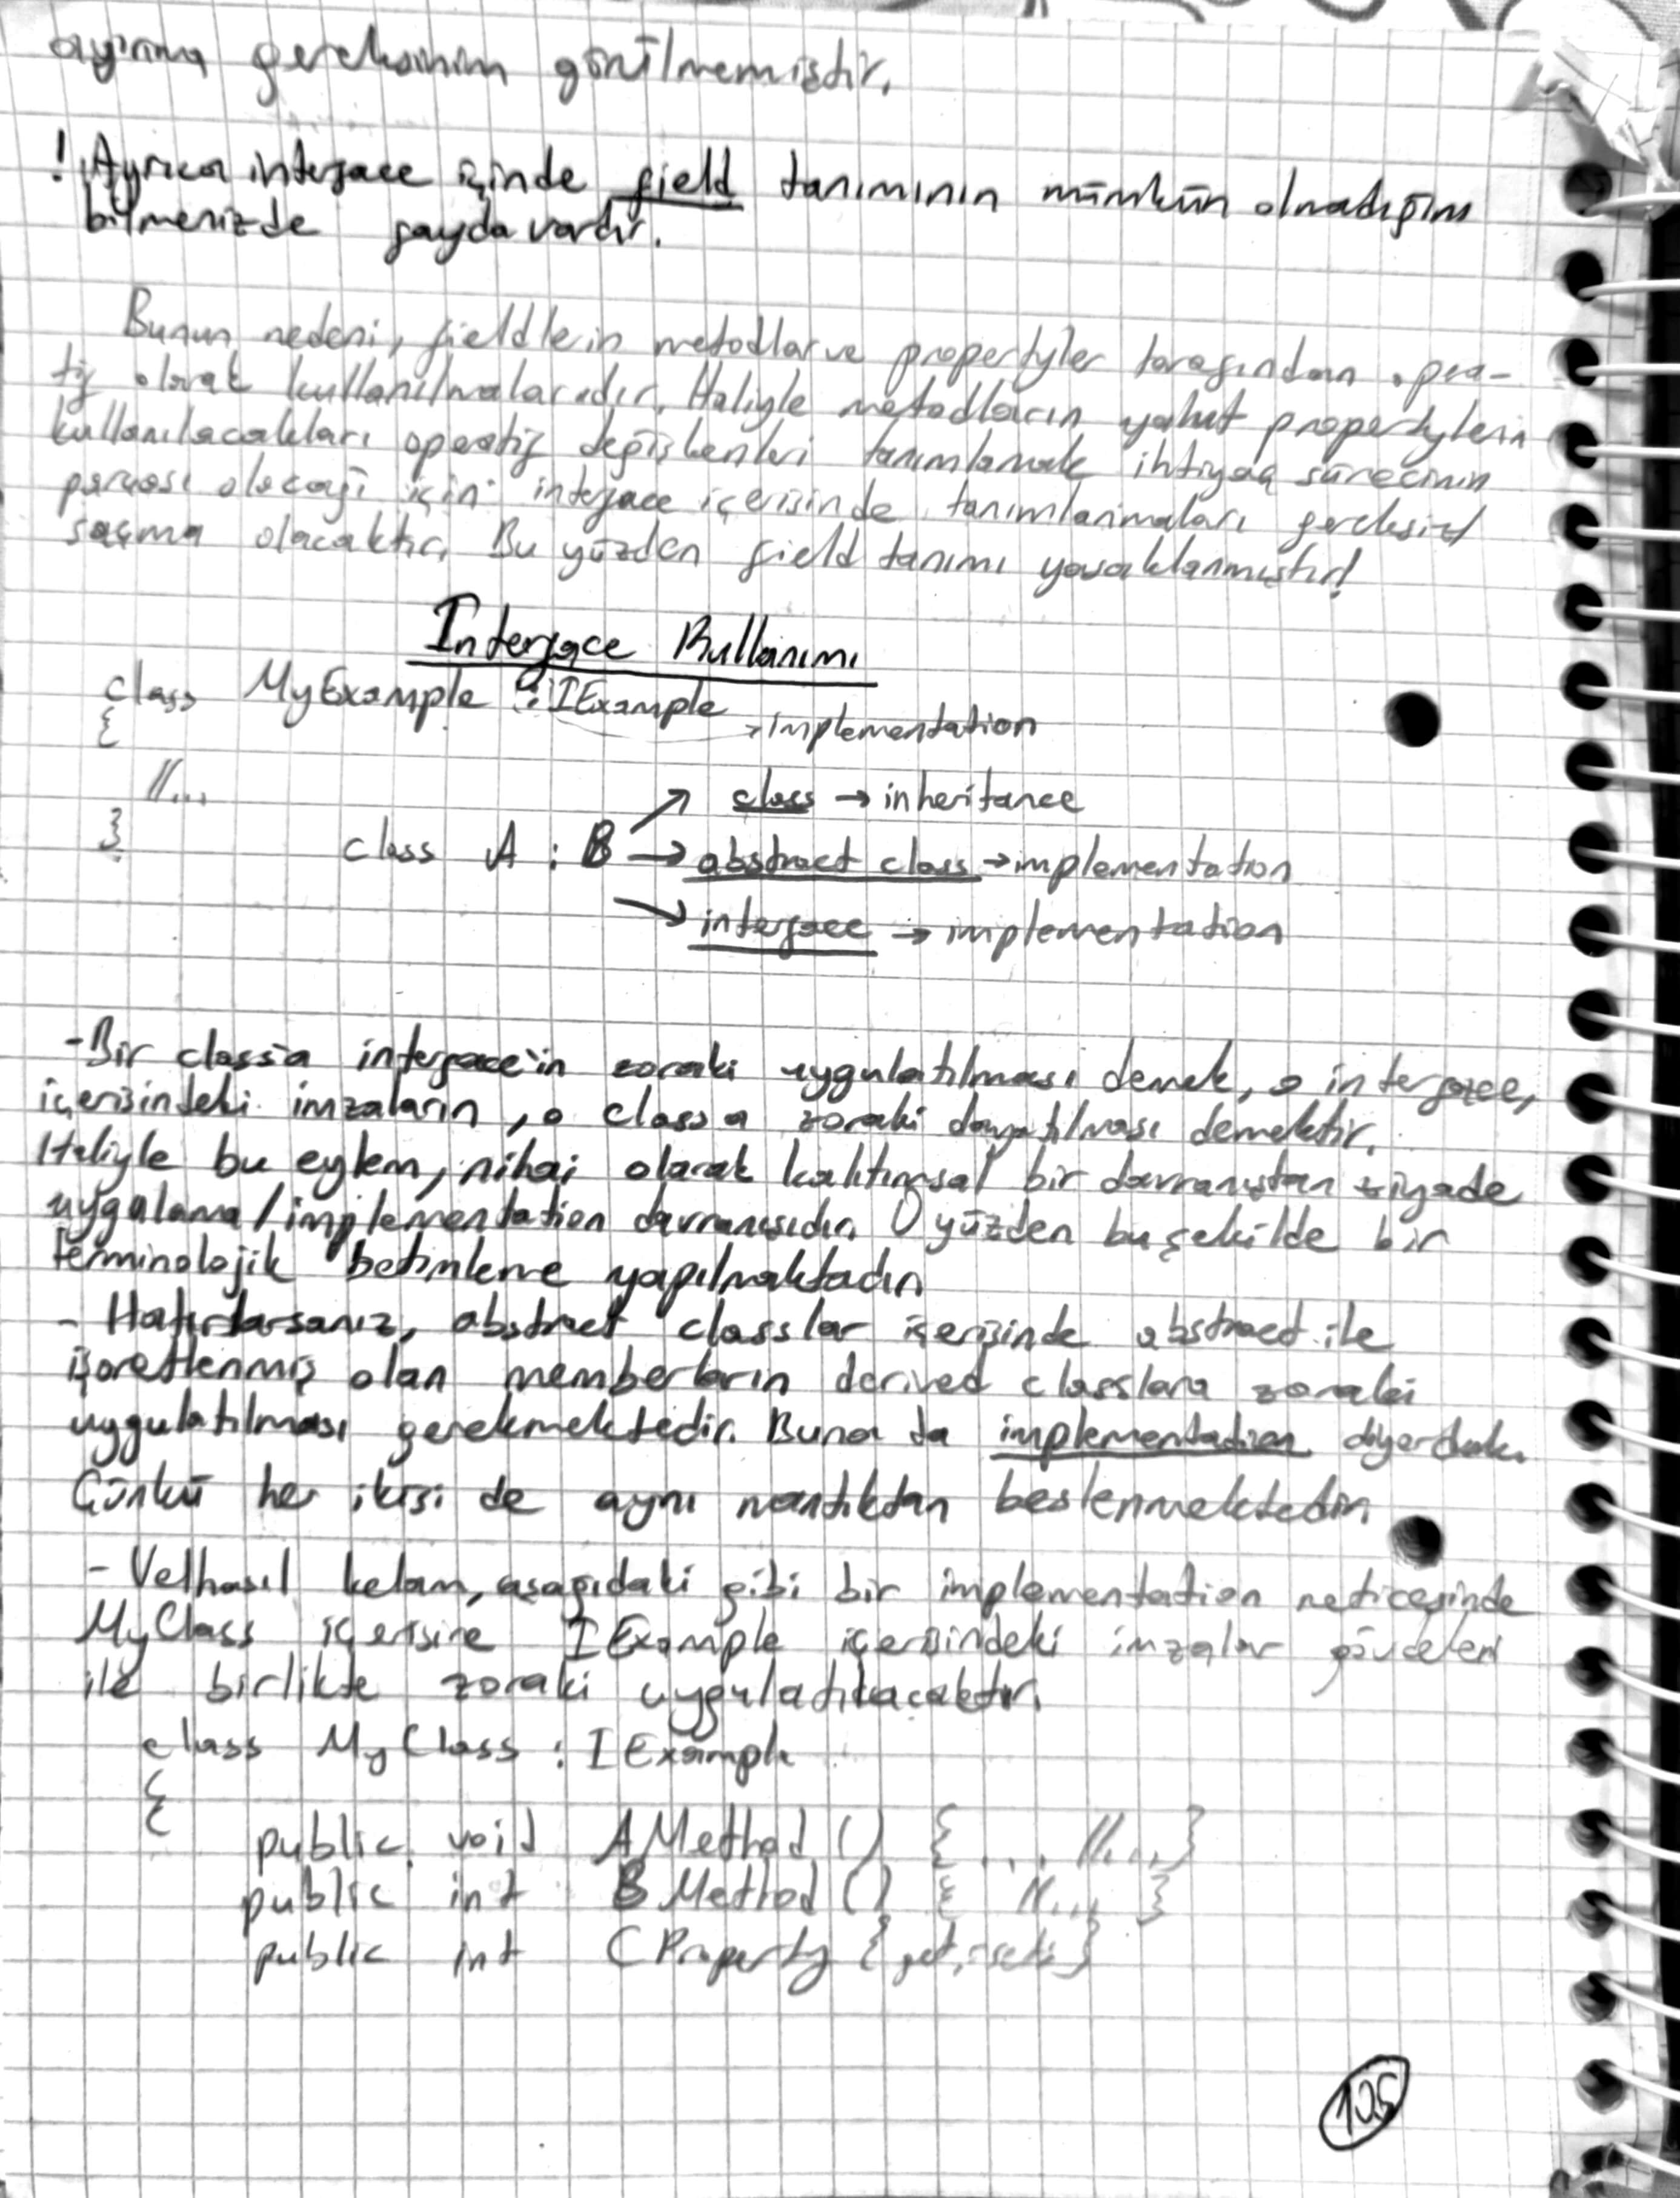 ayrıma gereksinim görülmemiştir.
! Ayrıca interface içinde field tanımının mümkün olmadığını
bilmenizde fayda vardır.
Bunun nedeni, fieldlerin metodlar ve propertyler tarafından opera-
tif olarak kullanılmalarıdır. Haliyle metodların yahut propertylerin
kullanılacakları operatif değişkenleri tanımlamak ihtiyaç sürecinin
parçası olacağı için interface içerisinde tanımlanmaları gereksiz/
saçma olacaktır. Bu yüzden field tanımı yasaklanmıştır!
Interface Kullanımı
class MyExample : IExample
→ implementation
{
//...
}
class → inheritance
class A : B → abstract class → implementation
interface → implementation
- Bir class'a interface'in zoraki uygulatılması demek, o interface,
içerisindeki imzaların, o class a zoraki dayatılması demektir.
Haliyle bu eylem, nihai olarak kalıtımsal bir davranıştan ziyade
uygulama/implementation davranışıdır. O yüzden bu şekilde bir
terminolojik betimleme yapılmaktadır.
- Hatırlarsanız, abstract classlar içerisinde abstract ile
işaretlenmiş olan memberların derived classlara zoraki
uygulatılması gerekmektedir. Buna da implementation diyorduk.
Çünkü her ikisi de aynı mantıktan beslenmektedir.
- Velhasıl kelam, aşağıdaki gibi bir implementation neticesinde
MyClass içerisine IExample içerisindeki imzalar gövdeleri
ile birlikte zoraki uygulatılacaktır.
class MyClass : IExample
{
public void AMethod () { ... //... }
public int BMethod () { //... }
public int CProperty { get; set; }
105